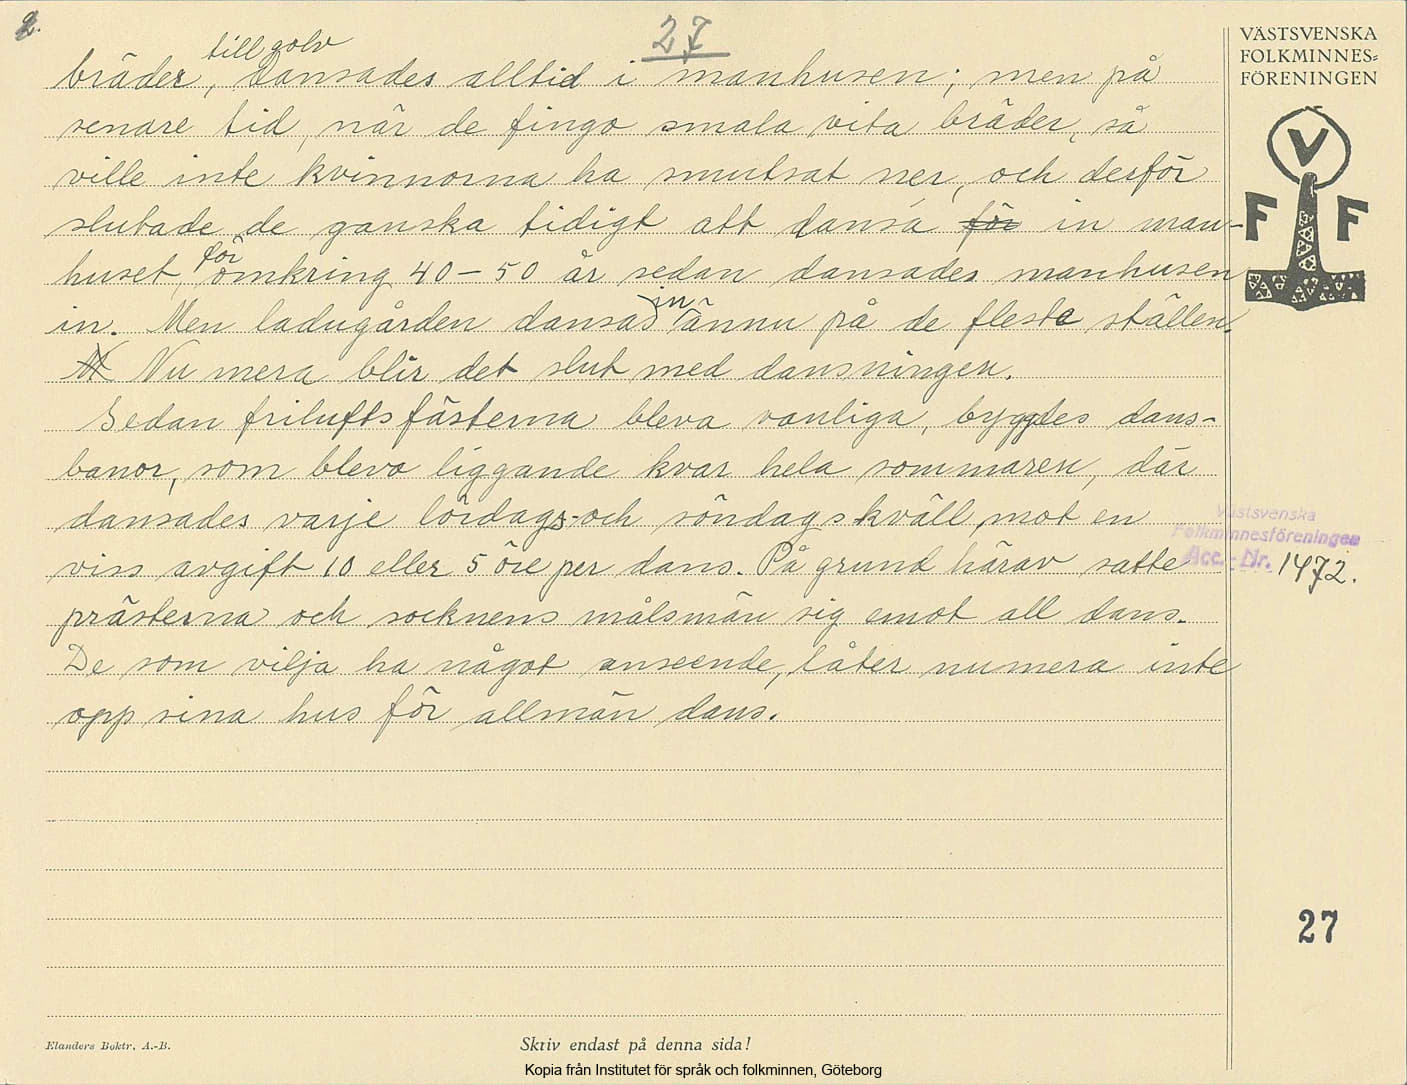 2.
27
VÄSTSVENSKA
FOLKMINNES=
FÖRENINGEN
till golv
bräder, dansades alltid i manhusen; men på
senare tid, när de fingo smala vita bräder, så
ville inte kvinnorna ha smutsat ner, och derför
slutade de ganska tidigt att dansa för in man-
huset, för omkring 40–50 år sedan dansades manhusen
in. Men ladugården dansad in ännu på de flesta ställen.
Nu mera blir det slut med dansningen.
Sedan friluftsfästerna bleva vanliga, byggdes dans-
banor, som blevo liggande kvar hela sommaren, där
dansades varje lördags- och söndagskväll, mot en
viss avgift 10 eller 5 öre per dans. På grund härav satte
prästerna och socknens målsmän sig emot all dans.
De som vilja ha något anseende, låter numera inte
opp sina hus för allmän dans.
V
F F
Västsvenska
Folkminnesföreningen
Acc.- Nr. 1472.
27
Elanders Boktr. A.-B.
Skriv endast på denna sida!
Kopia från Institutet för språk och folkminnen, Göteborg